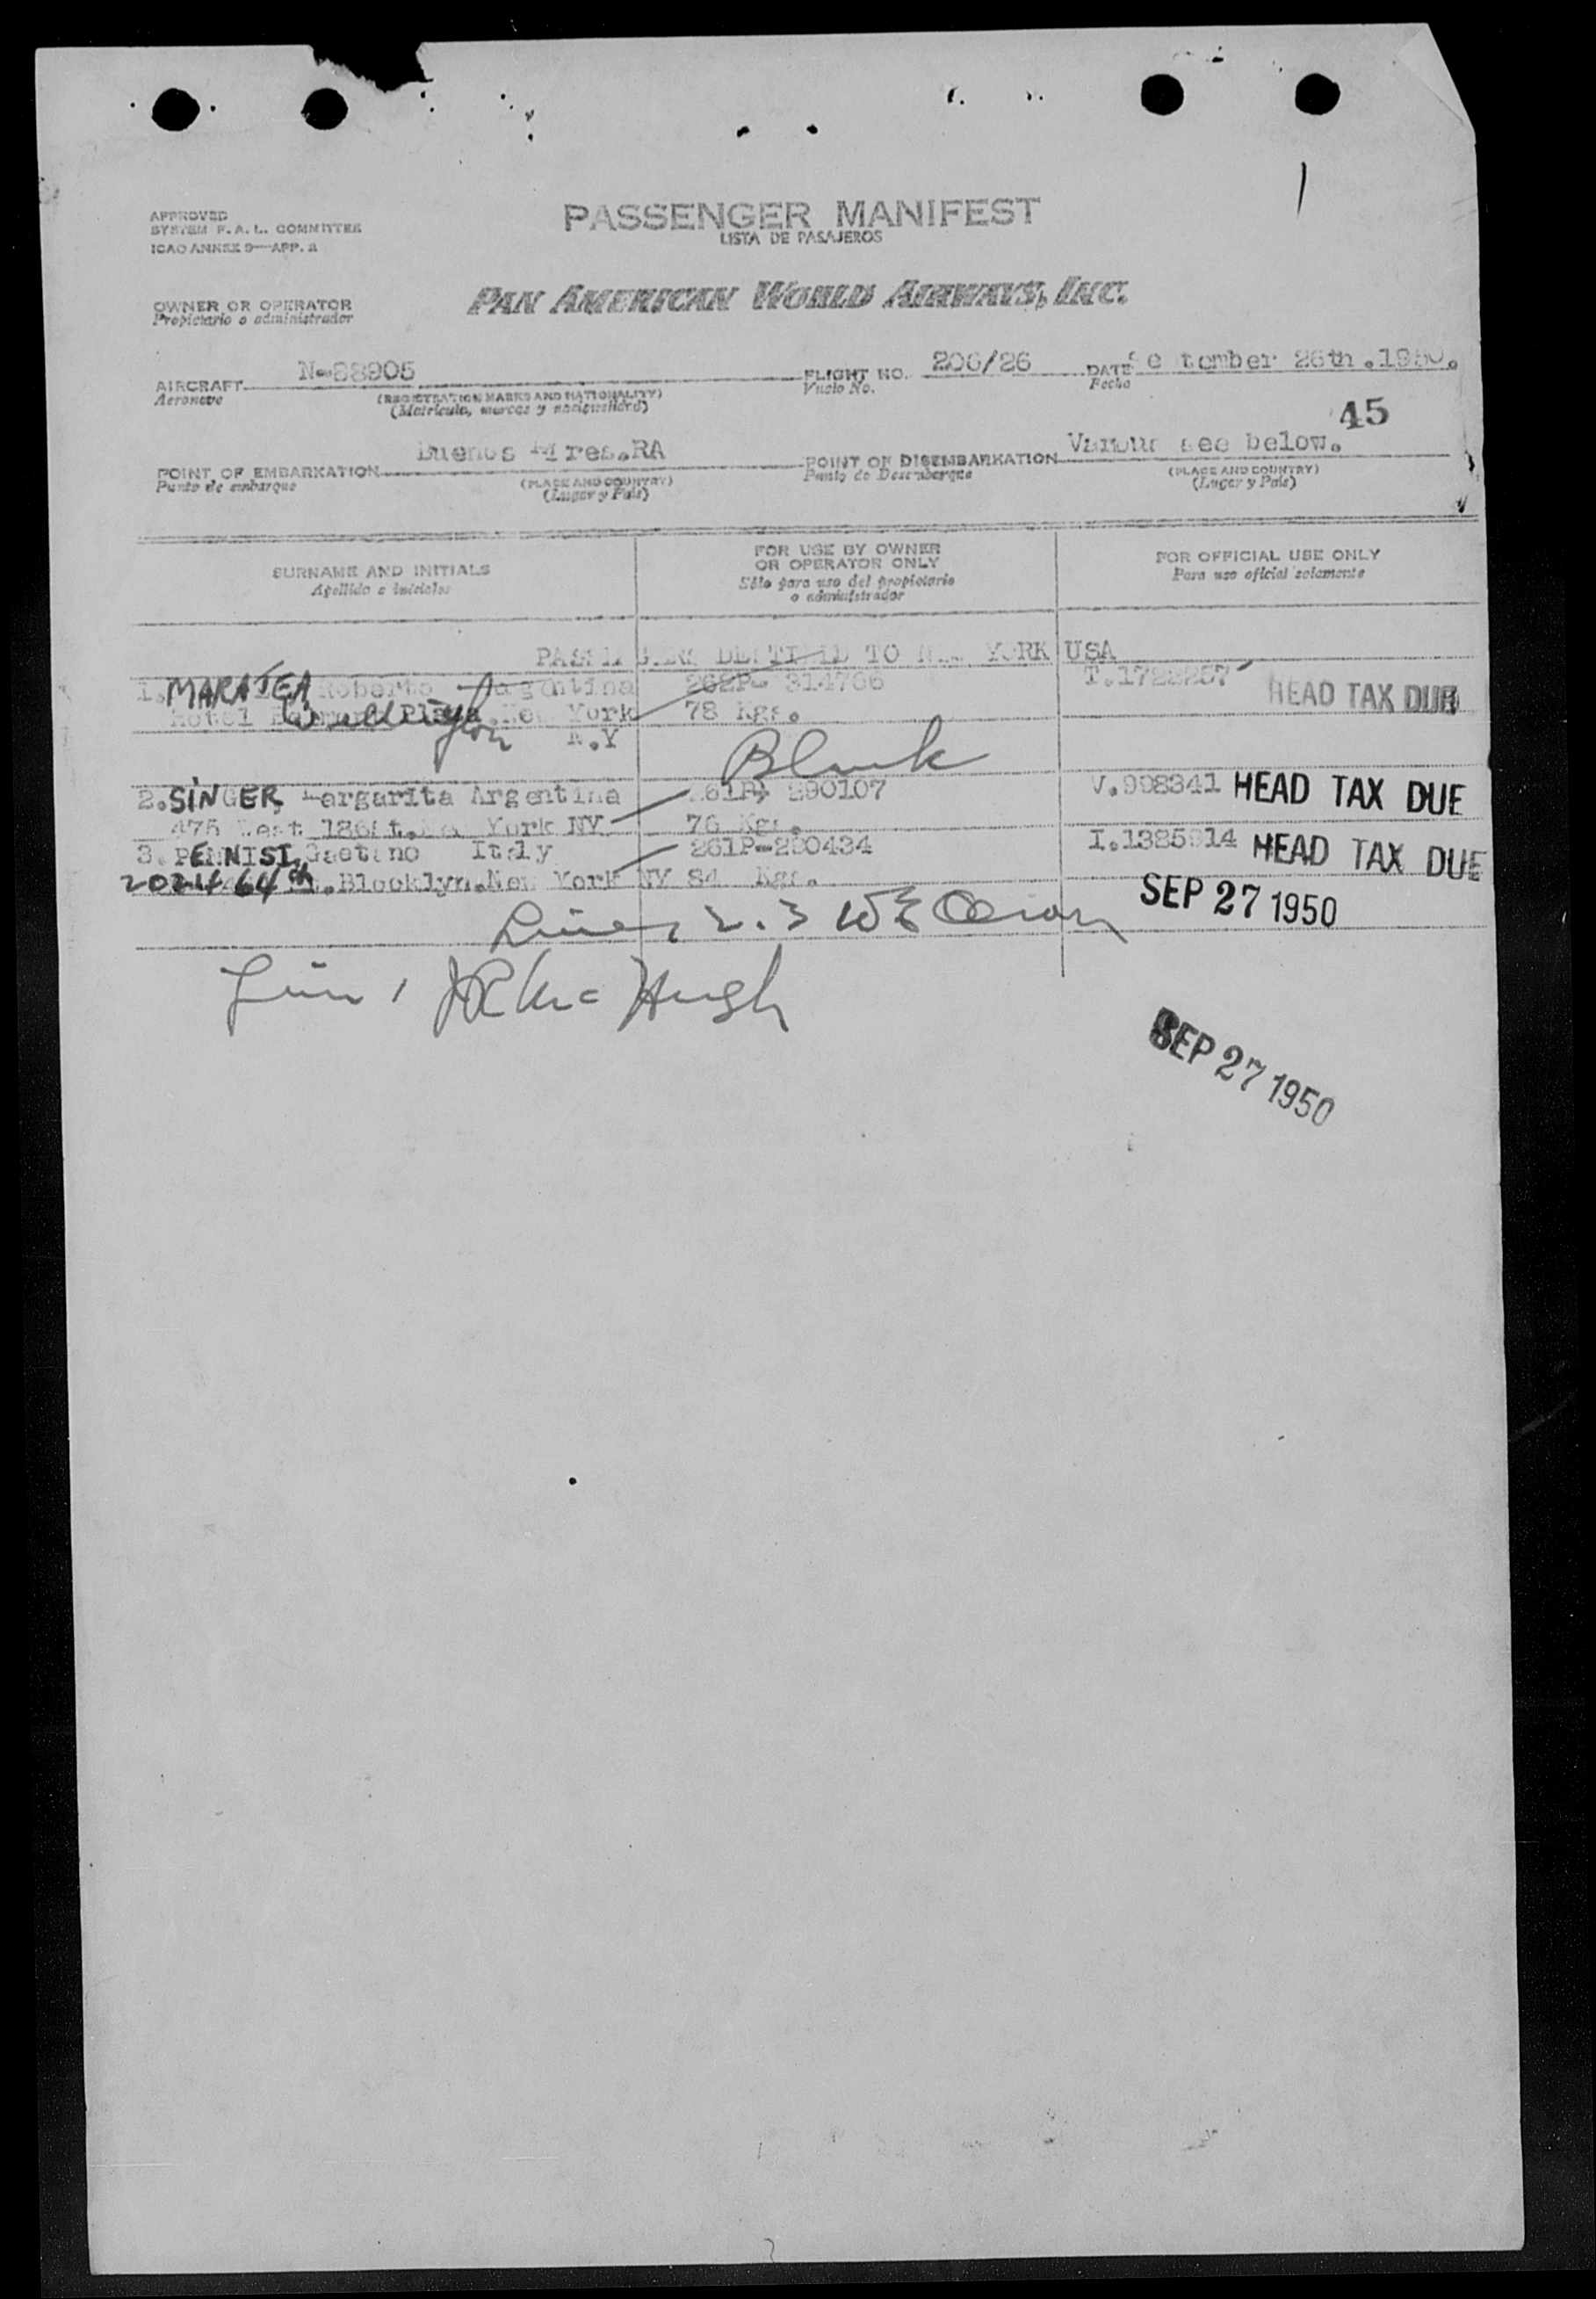 APPROVED
SYSTEM F.A.L. COMMITTEE
ICAO ANNEX 9—APP. A
PASSENGER MANIFEST
LISTA DE PASAJEROS
OWNER OR OPERATOR
Propietario o administrador
PAN AMERICAN WORLD AIRWAYS, INC.
AIRCRAFT N-88905 FLIGHT NO. 206/26 DATE Se tember 26th.1950.
Aeronave (REGISTRATION MARKS AND NATIONALITY) Vuelo No. Fecha
(Matrícula, marcas y nacionalidad)
45
POINT OF EMBARKATION Buenos Aires.RA POINT OF DISEMBARKATION Various see below.
Punto de embarque (PLACE AND COUNTRY) Punto de Desembarque (PLACE AND COUNTRY)
(Lugar y País) (Lugar y País)
SURNAME AND INITIALS FOR USE BY OWNER OR OPERATOR ONLY FOR OFFICIAL USE ONLY
Apellido e iniciales Sólo para uso del propietario o administrador Para uso oficial solamente
PASSENGERS DESTINED TO NEW YORK USA
1. MARATEA Roberto Argentina 262P- 314766 HEAD TAX DUE
Hotel Plaza.New York 78 Kgs.
N.Y
Blank
2.SINGER, Margarita Argentina 261P- 290107 V.998341 HEAD TAX DUE
475 West 186St.New York NY 76 Kgs.
3.PENNISI, Gaetano Italy 261P-290434 HEAD TAX DUE
64th.Blocklyn.New York NY 84 Kgs.
SEP 27 1950
Lines 2.3
Line 1 Mc Hugh
SEP 27 1950